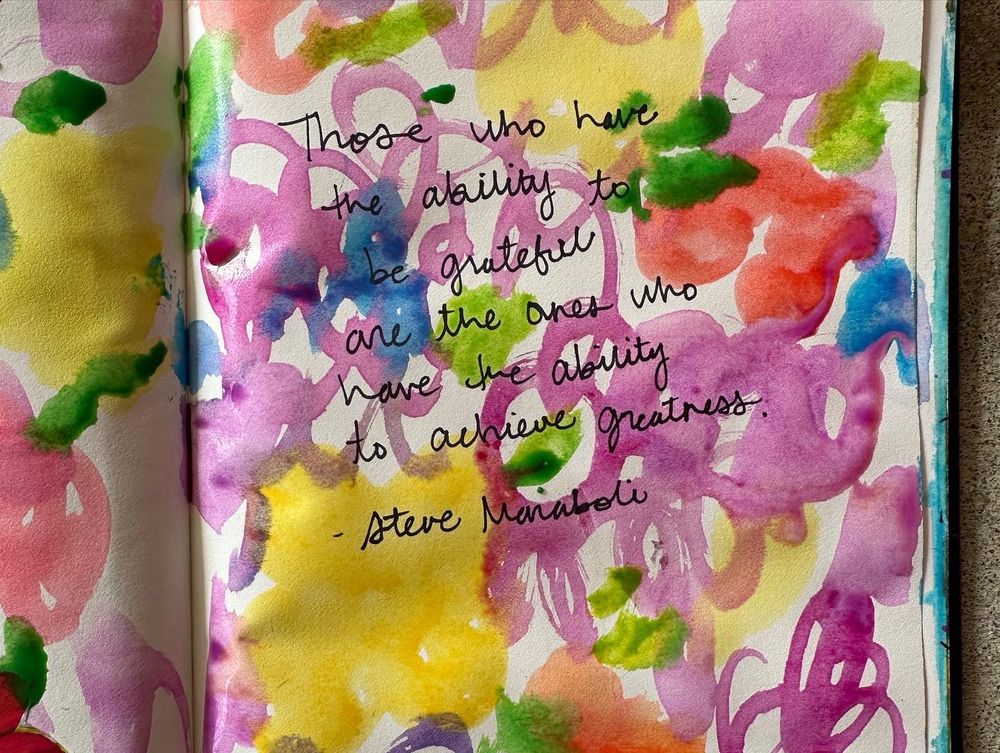 Those who have
the ability to
be grateful
are the ones who
have the ability
to achieve greatness.
- Steve Maraboli